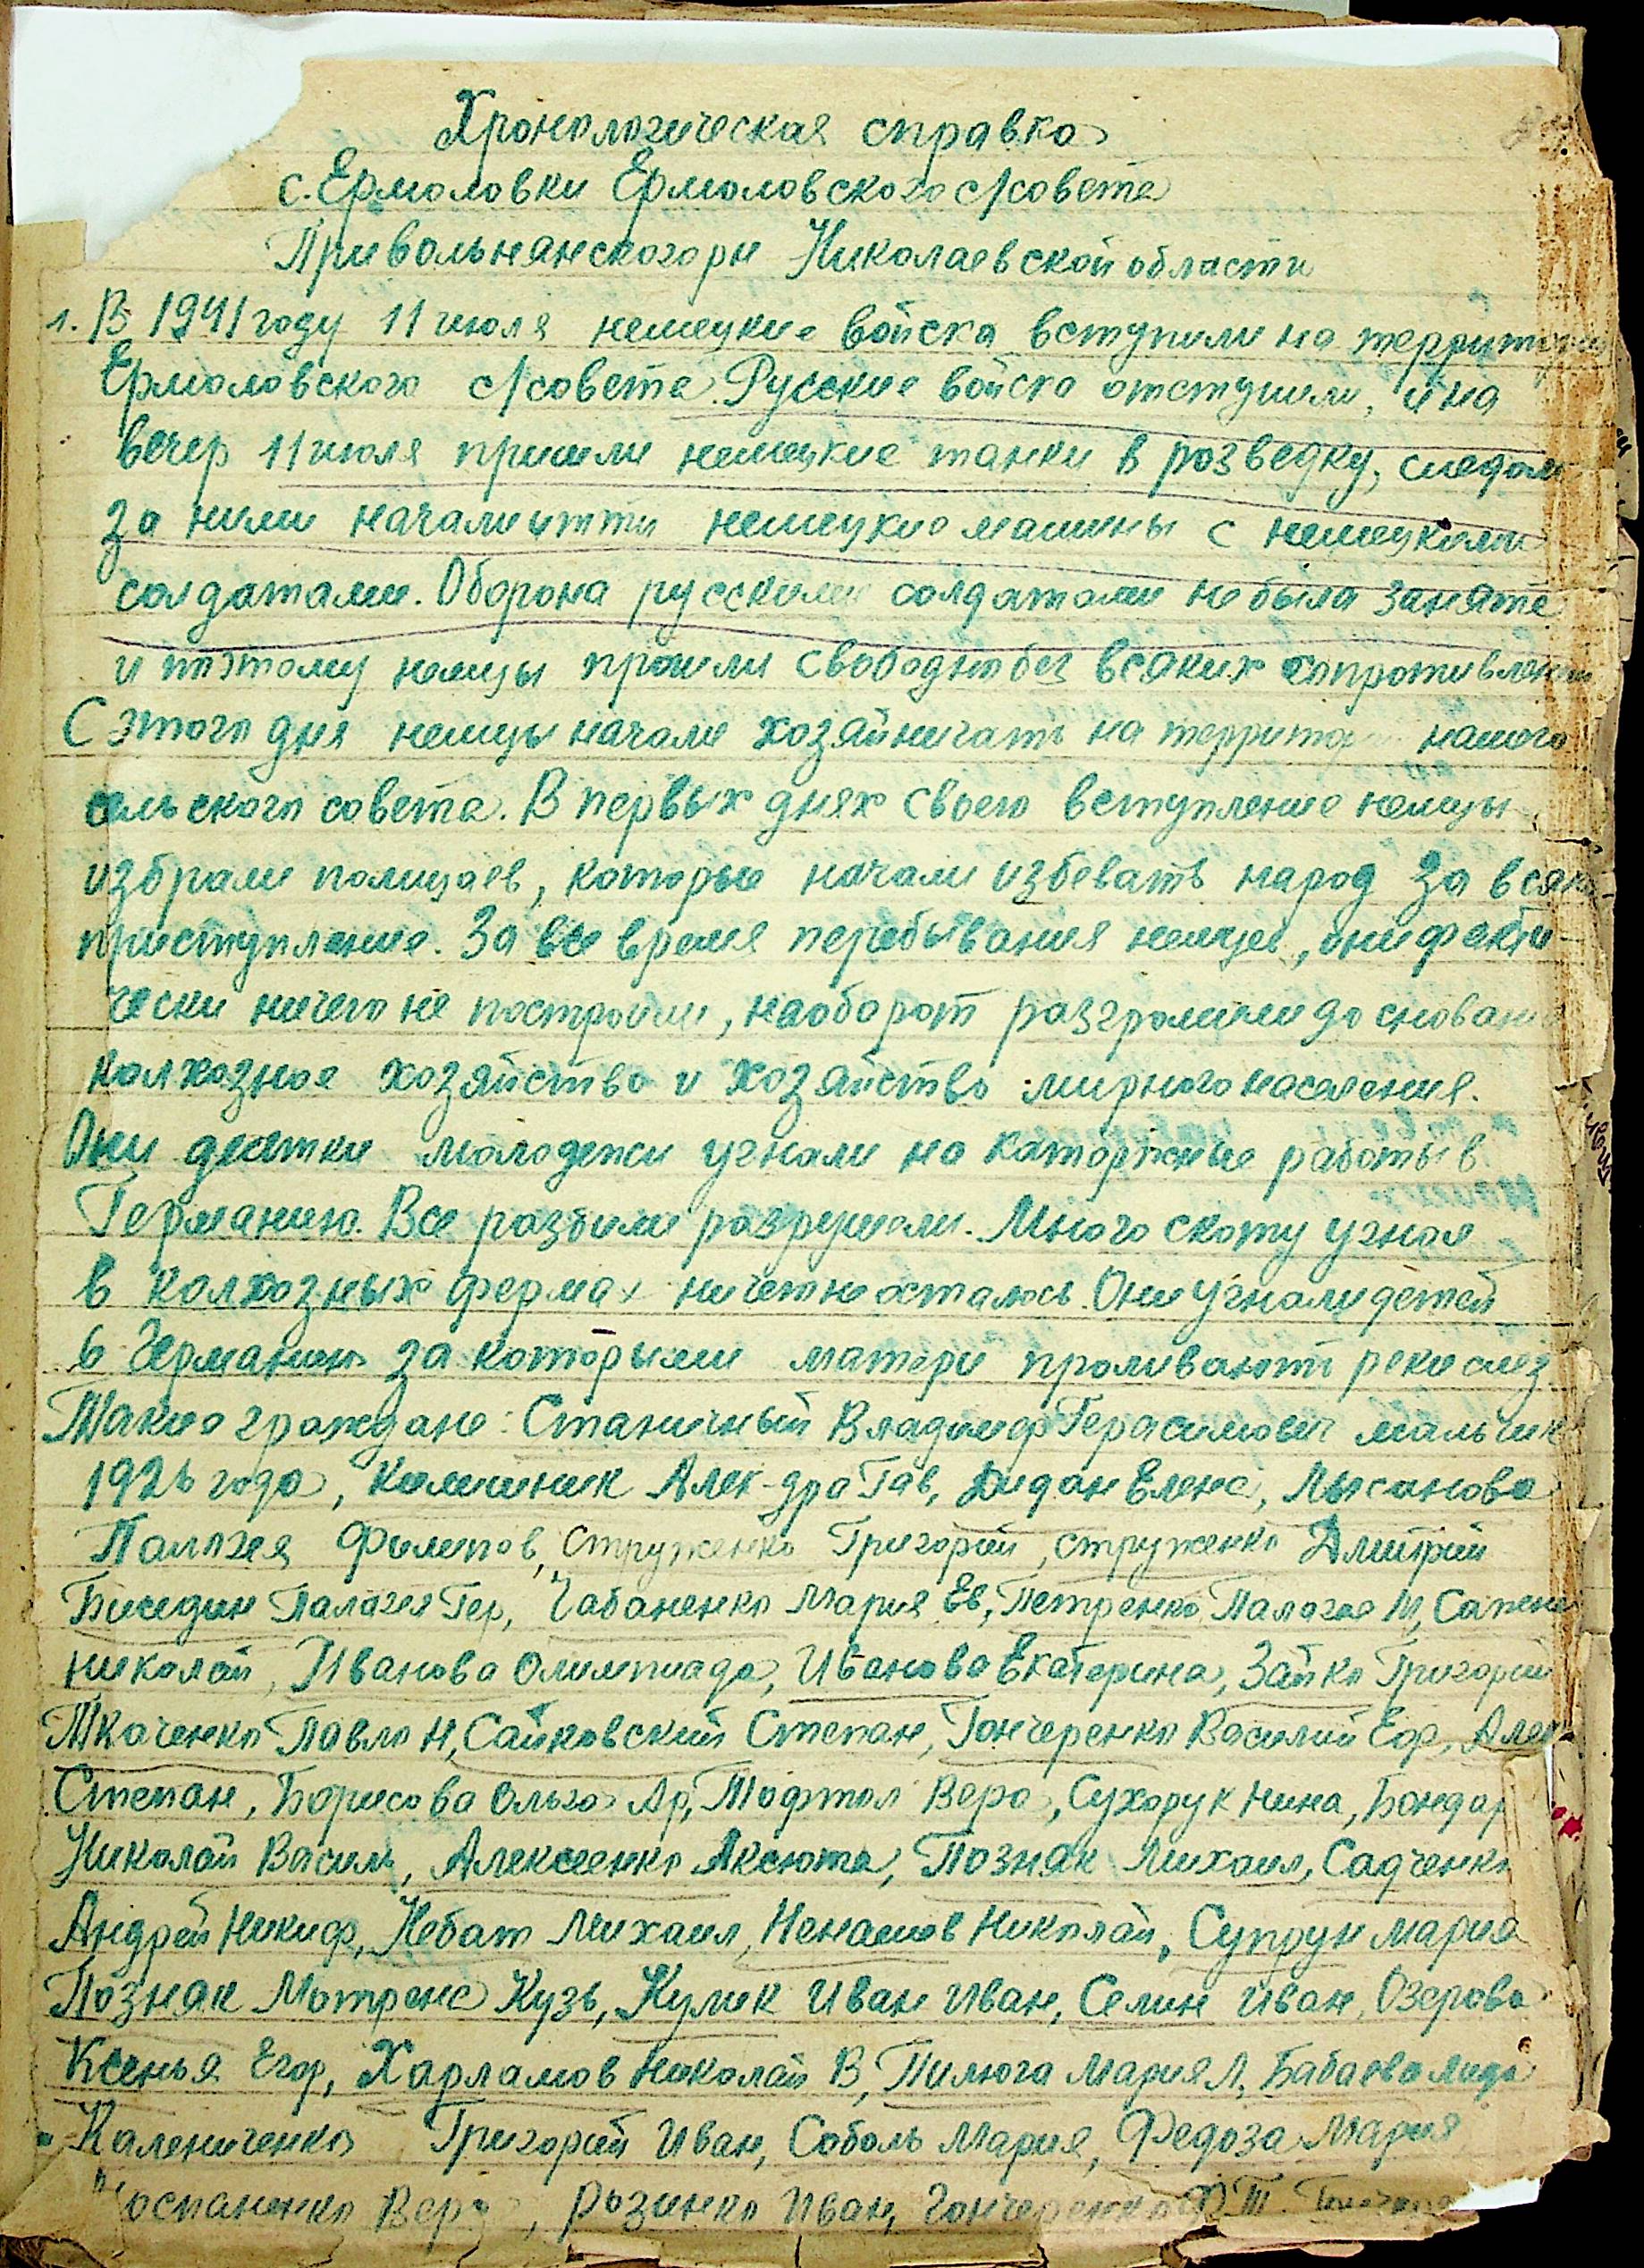 Хронологическая справка
с. Ермоловки Ермоловского с/совета
Привольнянскогорн Николаевской области
1. В 1941 году 11 июля немецкие войска вступили на территори
Ермоловского с/совета. Русские войска отступили, и на
вечер 11 июля пришли немецкие танки в розведку, следом
за ними начали итти немецкие машины с немецкими
солдатами. Оборона русскими солдатами не была занята
и поэтому немцы прошли свободно без всяких сопротивлений
С этого дня немцы начали хозяйничать на территор нашего
сельского совета. В первых днях своего вступление немцы
избрали полицаев, которые начали избевать народ за всяко
приступление. За все время перебывания немцев, они факти-
чески ничего не построили, наоборот разгромили до сновани
колхозное хозяйство и хозяйство мирного населения.
Они десятки молодежи угнали на каторжные работы в
Германию. Все разбили разрушили. Много скоту угнал
в колхозных фермах ничего не осталось. Они угнали детей
в Германию за которыми матери проливають реки слез
Такие граждане: Станичный Владимир Герасимович мальчик
1926 года, Калишник Алек-дра Гав, Дидан Елена, Лысанова
Палагея Филипов, Струженко Григорий, струженко Дмитрий
Биседин Палагея Гер, Чабаненко Мария Ев, Петренко Палагея М, Сапен
Николай, Иванова Олимпиада, Иванова Екатерина, Зайко Григорий
Ткаченко Павло Н, Сайковский Степан, Гончеренко Василий Еф, Алек
Степан, Борисова Ольга Ар, Тофтол Вера, Сухорук Нина, Бондар
Николай Василь, Алексеенко Аксюта, Позняк Михаил, Садченко
Андрей Никиф, Небат Михаил, Ненашев Николай, Супрун Мария
Позняк Мотрена Кузь, Кулик Иван Иван, Селин Иван, Озерова
Ксенья Егор, Харламов Николай В, Пилюга Мария Л, Бабаева Лида
Калениченко Григорий Иван, Соболь Мария, Федоза Мария
оспаненко Вера, Розинко Иван, Гончеренко Ф.Т.